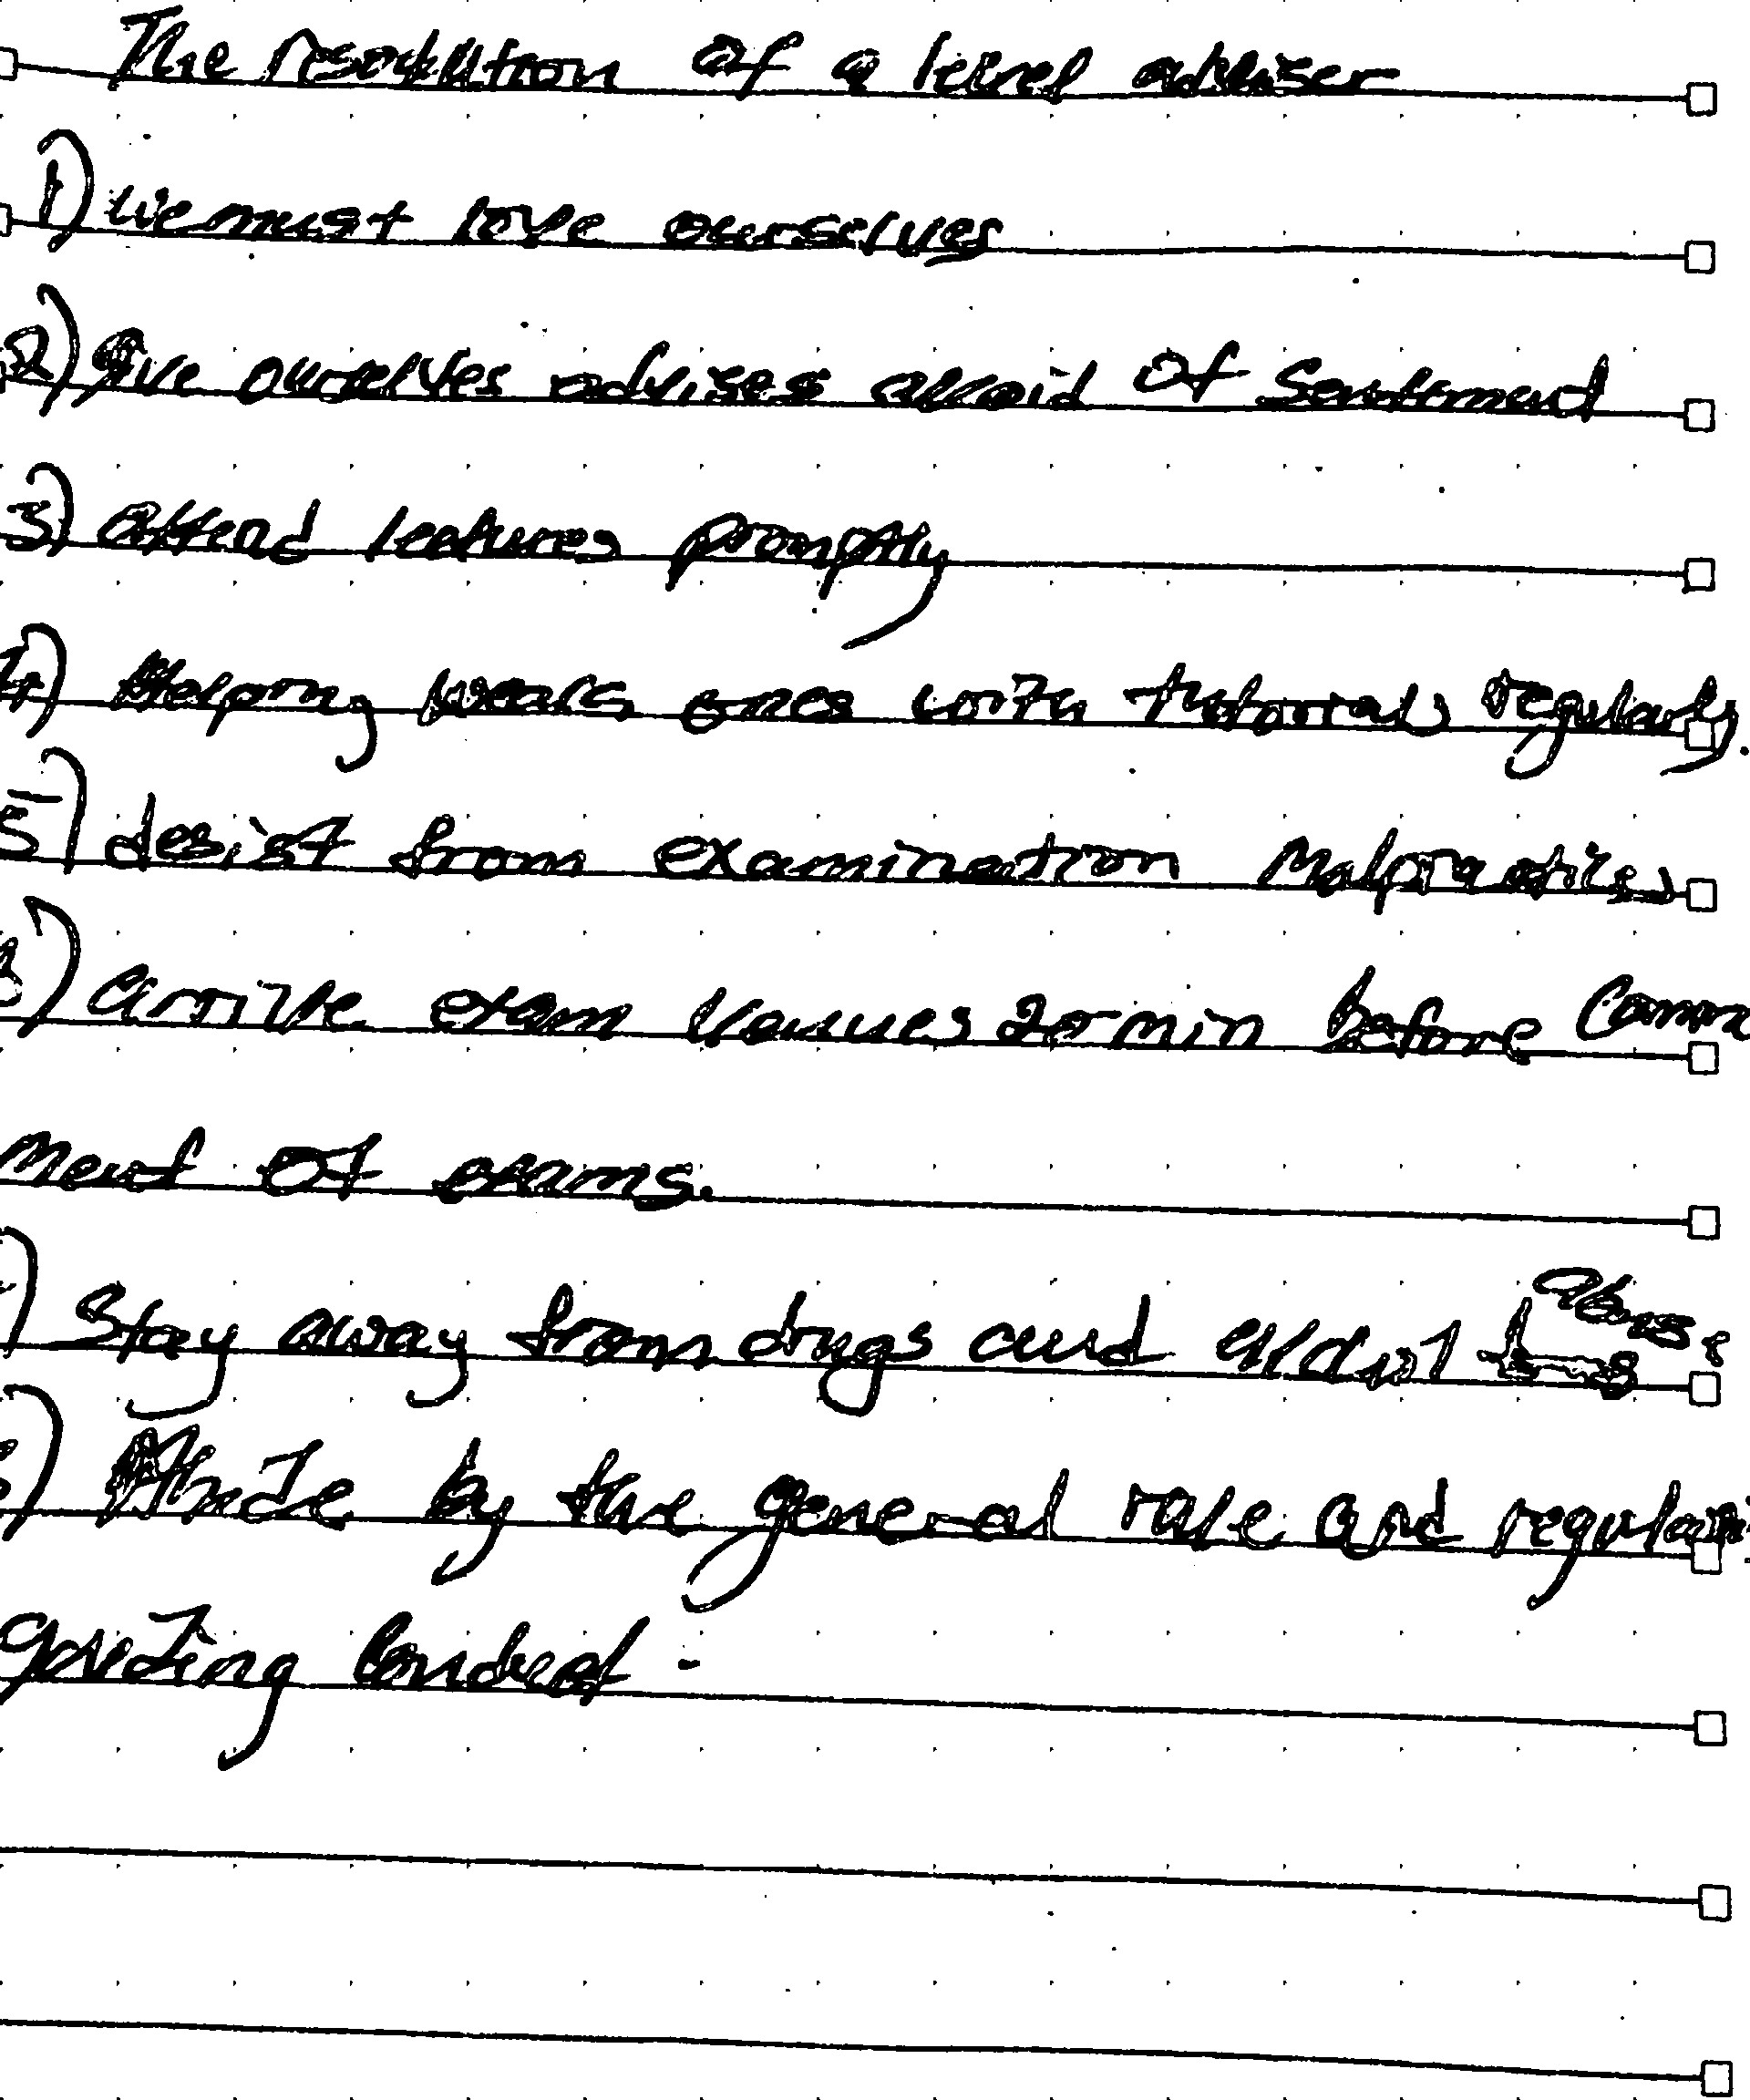 The resolution of a level adviser
1) We must love ourselves
2) give ourselves advises avoid of sentiment
3) attend lectures promptly
4) Helping weak ones with tutorials regularly.
5) desist from examination malpractices
6) arrive exam venues 20 min before comm
ment of exams.
) Stay away from drugs and abuse
) Abide by the general rule and
guiding conduct.